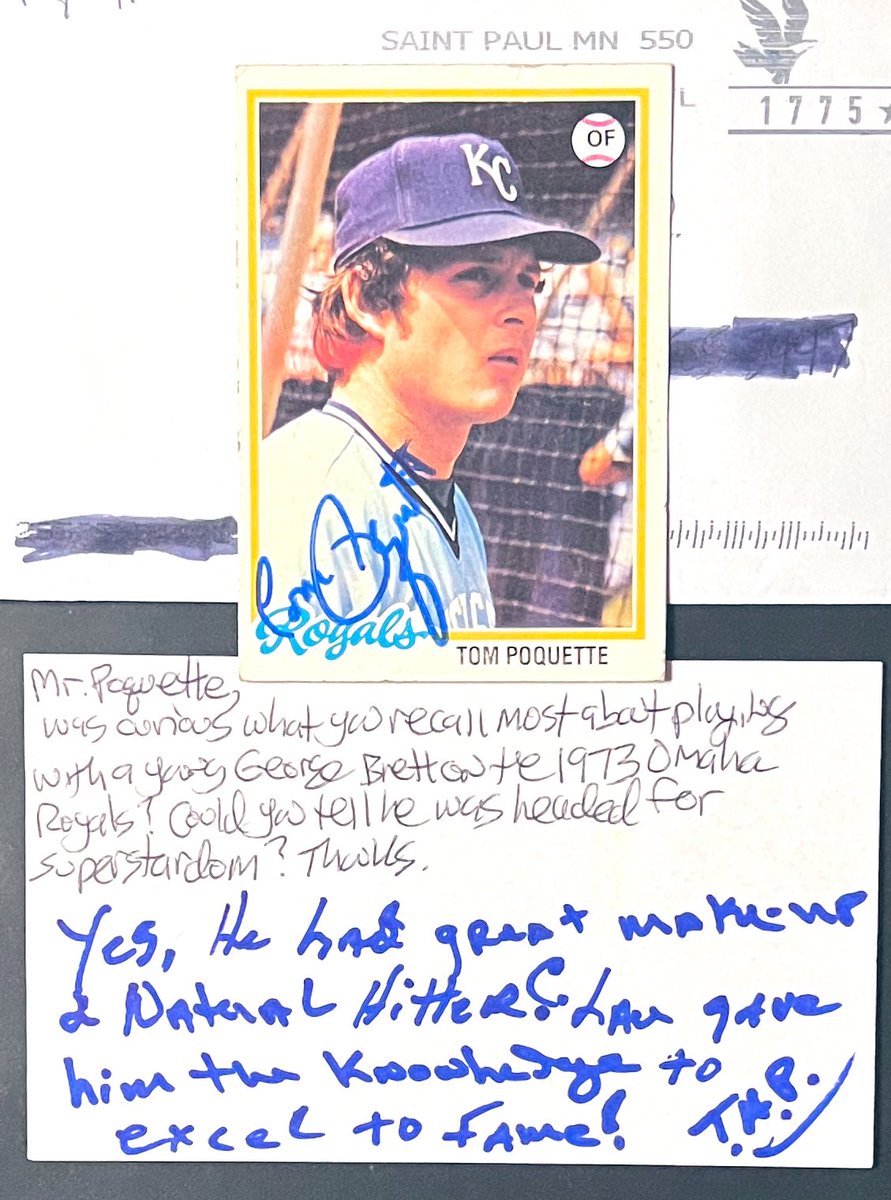 SAINT PAUL MN 550
L
1775
KC
OF
Tom Poquette
Royals
TOM POQUETTE
Mr. Poquette,
was curious what you recall most about playing
with a young George Brett on the 1973 Omaha
Royals? Could you tell he was headed for
superstardom? Thanks.
Yes, He had great make-up
& Natural Hitter! Lau gave
him the Knowledge to
excel to Fame!
T.A.P.